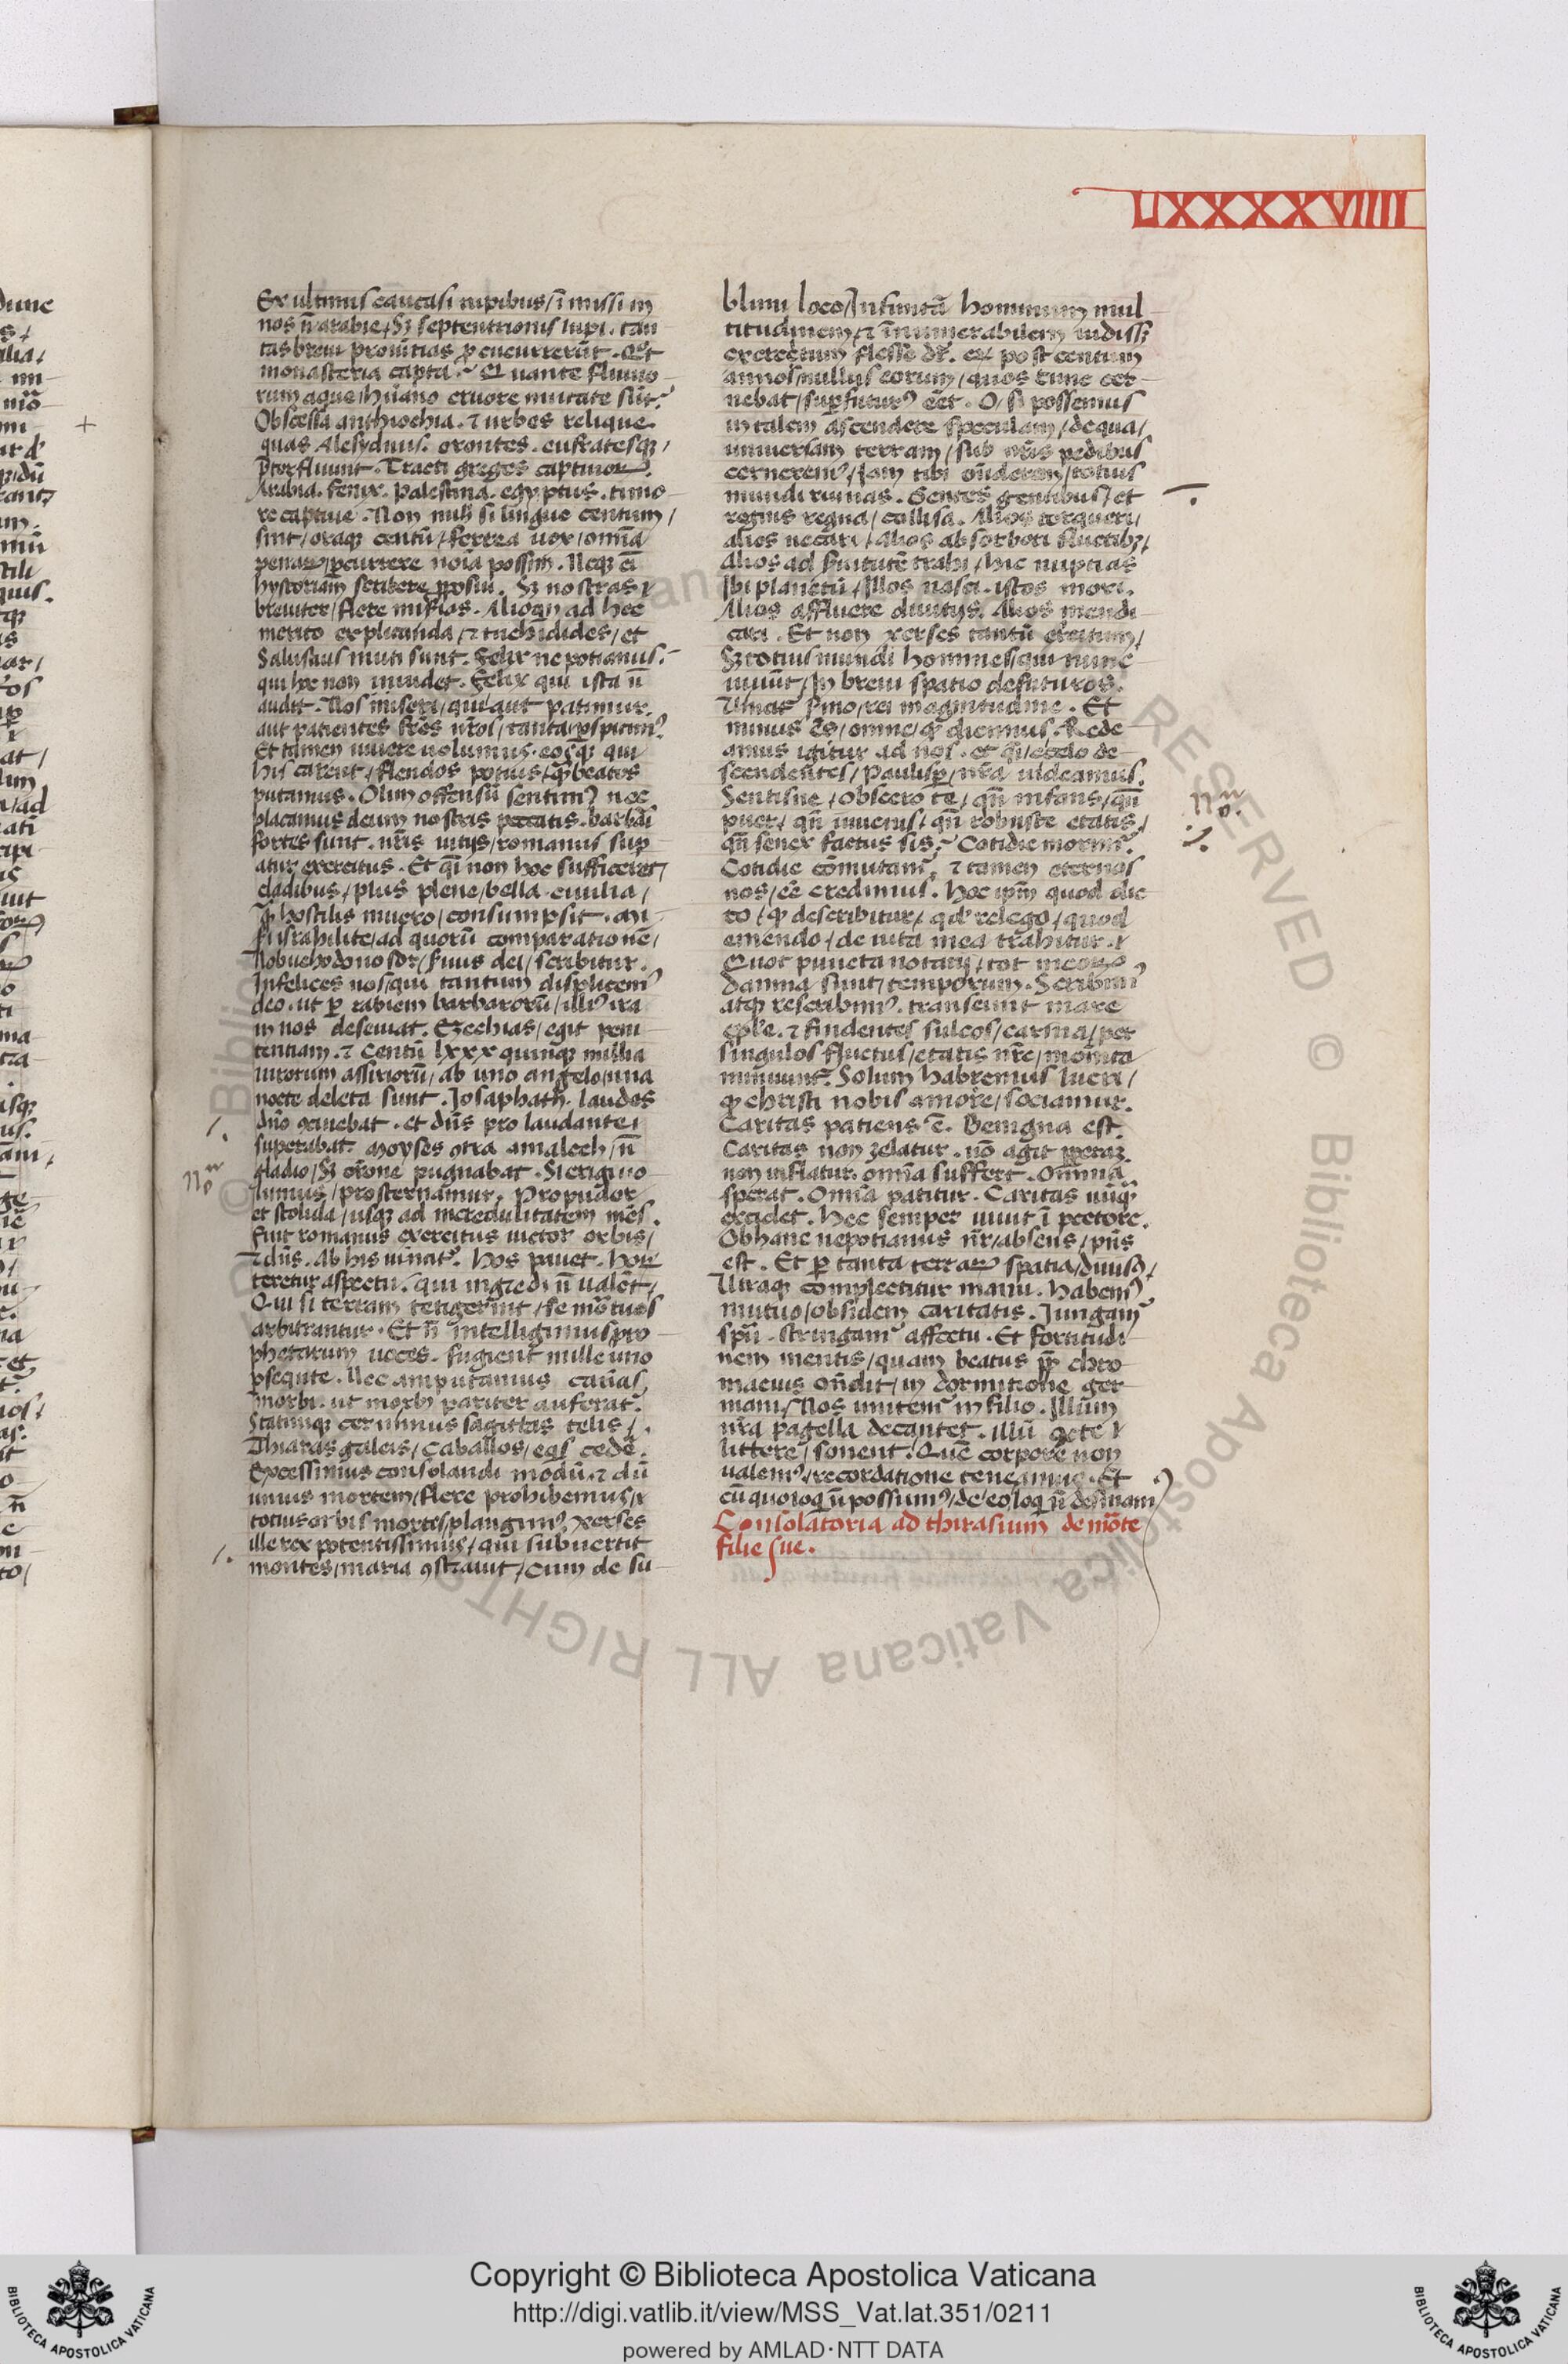 LXXXXVIIII
Ex ultimis caucasi rupibus / ī missi in
nos n̄ arabie / Sȝ septentrionis lupi . tan
tas brevi provītias ꝑcucurrerūt . Qͦt
monasteria capta .᷎ Quante fluvio
rum aque / hūano cruore mutate sūt .᷎
Obsessa anthiochia . ⁊ urbes relique
quas Alesydnus . orontes . eufratesqꝫ /
Arabia . fenix . palestina . egyptus . timo
re captive . Non mihi si lingue centum /
sint / oraqꝫ centū / ferrea vox / omīa
hystoriam scribere ꝓposui . Sȝ nostras
breviter / flere miserias . Alioqn ad hec
merito explicanda / ⁊ tuchidides / et
Salustius muti sunt . Felix nepotianus .᷎
qui hec non videt . Felix qui ista n̄
audit . Nos miseri / qui aut patimur .
aut patientes fr̄es nr̄os / tanta ꝑspicimꝰ
Et tamen vivere volumus . eosqꝫ qui
his carent / flendos potius / qͣ beatos
putamus . Olim offensū sentimꝰ nec
placamus deum nostris peccatis . barbari
fortes sunt . nr̄is vitijs / romanus sup
atur exercitus . Et qͣi non hoc sufficeret /
cladibus / plus plene / bella civilia /
qͣ hostilis mucro / consumpsit . Mi
seri israhilite / ad quorū comparationē /
Nobuchodonosor / servus dei / scribitur .
Infelices nos / qui tantum displicemꝰ
deo . ut ꝑ rabiem barbarorū / illiꝰ ira
in nos deseviat . Ezechias / egit peni
tentiam . ⁊ Centū lxxx quinqꝫ millia
virorum assiriorū / ab uno angelo / una
nocte deleta sunt . Josaphath . laudes
dn̄o ꝯcinebat . et dn̄s pro laudante
superabat . Moyses ꝯtra amalech / n̄
gladio / Sȝ or̄one pugnabat . Si erigi vo
lumus / prosternamur . Propudor
et stolida / usqꝫ ad incredulitatem mēs .
Fuit romanus exercitus victor orbis /
teretur aspectu .᷎ qui ingredi n̄ valēt /
Qui si terram tetigerint / se mōrtuos
arbitrantur . Et n̄ intelligimus pro
phetarum voces . Fugient mille uno
ꝑseqūte . Nec amputamus causas
morbi . ut morbꝰ pariter auferatᷣ .
Statimqꝫ cernimus sagittas telis /
Thiaras galeis / Caballos / eqͥs cedē .
Excessimus consolandi modū . ⁊ dū
unius mortem / flere prohibemus /
totius orbis mortes / plangimꝰ . xerses
ille rex potentissimus / qui subvertit
montes / maria ꝯstravit / Cum de su
blimi loco / Infinitā hominum mul
titudinem / ⁊ īnumerabilem vidissꝫ
exercitum flesse dr̄ . eo ꝙ post centum
annos / nullus eorum / quos tunc cer
nebat / suꝑfuturꝰ eēt . O / si possemus
in talem ascendere speculam / de qua /
universam terram / sub nr̄is pedibus
cerneremꝰ / Jam tibi on̄derem / totius
mundi ruinas . Gentes gentibus / et
regnis regna / collisa . Alios torqueri /
alios necari / Alios absorberi fluctibꝫ /
Alios ad servitutē trahi / hic nuptias
Ibi planctū / Illos nasci . istos mori .
Alios affluere divitijs . Alios mendi
cari . Et non xerses tantū exercitum /
Sȝ totius mundi homines / qui nunc
vivūt / In brevi spatio defuturos .
Vīcitᷣ sermo / rei magnitudine . Et
minus ē / omne / qͩ dicimus . Rede
amus igitur ad nos . et qͣi / e celo de
scendentes / Paulisꝑ / nr̄a videamus .
Sentisne / obsecro te / qn̄ infans / qn̄
puer / qn̄ iuvenis / qn̄ robuste etatis /
qn̄ senex factus sis .᷎ Cotidie morimᷣ .
Cotidie cōmutamᷣ / ⁊ tamen eternos
nos / eē credimus . Hoc ipm̄ quod dic
to / qͩ describitur / qͩ relego / quod
emendo / de vita mea trahitur .
Quot puncta notarij / tot meoꝝ
damna sunt / temporum . Scribimꝰ
atqꝫ rescribimꝰ . transeunt mare
epl̄e . ⁊ findentes sulcos / carina / per
singulos fluctus / etatis nr̄e / momēta
minuuntᷣ . Solum habemus lucri /
qͩ christi nobis amore / sociamur .
Caritas patiens ē . Benigna est .
Caritas non zelatur . nō agit ꝑperaꝫ
non inflatur . omīa suffert . Omnia
sperat . Omīa patitur . Caritas nūqͣ
excidet . Hec semper vivit ī pectore .
Ob hanc nepotianus nr̄ / absens / pn̄s
est . Et ꝑ tanta terraꝝ spatia / divisꝰ /
Utraqꝫ complectitur manu . Habemꝰ
mutuo / obsidem caritatis . Jungamᷣ
spū . stringamᷣ affectu . Et fortitudi
nem mentis / quam beatus pp̄ chro
macius on̄dit / in dormitione ger
mani / Nos imitemᷣ in filio . Illum
nr̄a pagella decantet . illū ꝯcte
littere / sonent . Quē corpore non
valemꝰ / recordatione teneamus . Et
cū quo loqͥ n̄ possumꝰ / de eo / loqͥ n̄ desinam
Consolatoria ad thirasium de mōte
filie sue .
Copyright © Biblioteca Apostolica Vaticana
http://digi.vatlib.it/view/MSS_Vat.lat.351/0211
powered by AMLAD·NTT DATA
BIBLIOTECA APOSTOLICA VATICANA
BIBLIOTECA APOSTOLICA VATICANA